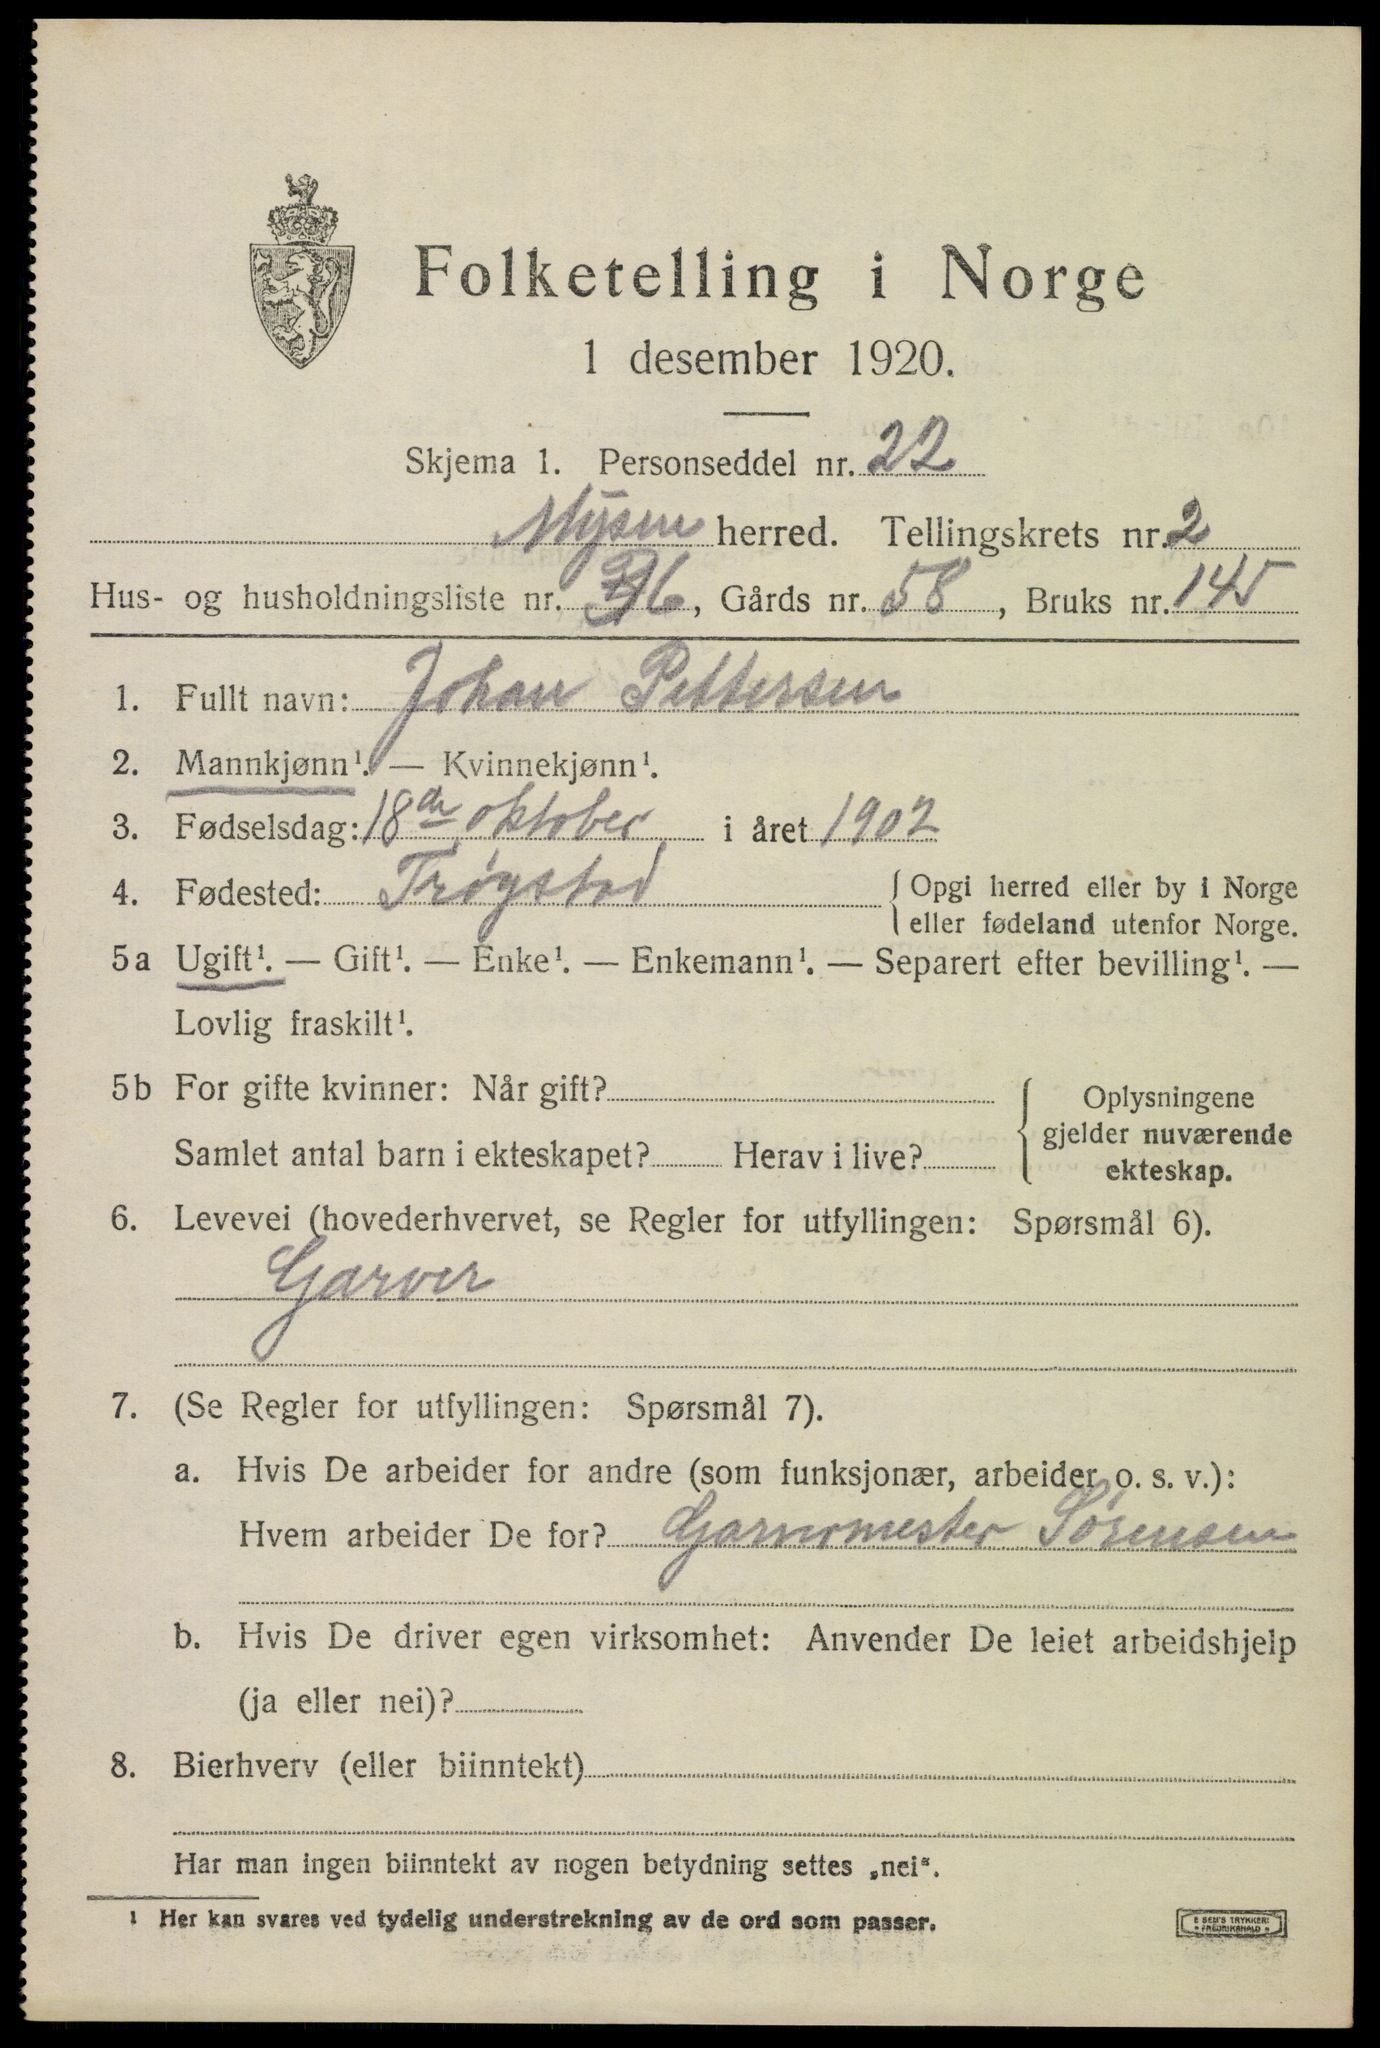 Folketelling i Norge
1 desember 1920.
Skjema 1. Personseddel nr. 22
Mysen herred. Tellingskrets nr. 2
Hus- og husholdningsliste nr. , Gårds nr. 58, Bruks nr. 145
1. Fullt navn: Johan Pettersen
2. Mannkjønn¹. — Kvinnekjønn¹.
3. Fødselsdag: 18de oktober i året 1902
4. Fødested: Trøgstad { Opgi herred eller by i Norge
eller fødeland utenfor Norge.
5a Ugift¹. — Gift¹. — Enke¹. — Enkemann¹. — Separert efter bevilling¹. —
Lovlig fraskilt¹.
5b For gifte kvinner: Når gift? { Oplysningene
gjelder nuværende
Samlet antal barn i ekteskapet? Herav i live? ekteskap.
6. Levevei (hovederhvervet, se Regler for utfyllingen: Spørsmål 6).
Garver
7. (Se Regler for utfyllingen: Spørsmål 7).
a. Hvis De arbeider for andre (som funksjonær, arbeider o. s. v.):
Hvem arbeider De for? Garvermester Sørensen
b. Hvis De driver egen virksomhet: Anvender De leiet arbeidshjelp
(ja eller nei)?
8. Bierhverv (eller biinntekt)
Har man ingen biinntekt av nogen betydning settes „nei“.
¹ Her kan svares ved tydelig understrekning av de ord som passer.
E SEM'S TRYKKERI
FREDRIKSHALD